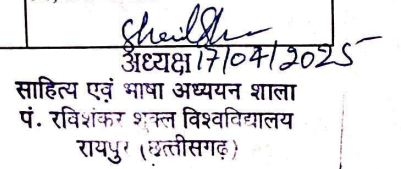 अध्यक्ष 17/04/2025
साहित्य एवं भाषा अध्ययन शाला
पं. रविशंकर शुक्ल विश्वविद्यालय
रायपुर (छत्तीसगढ़)